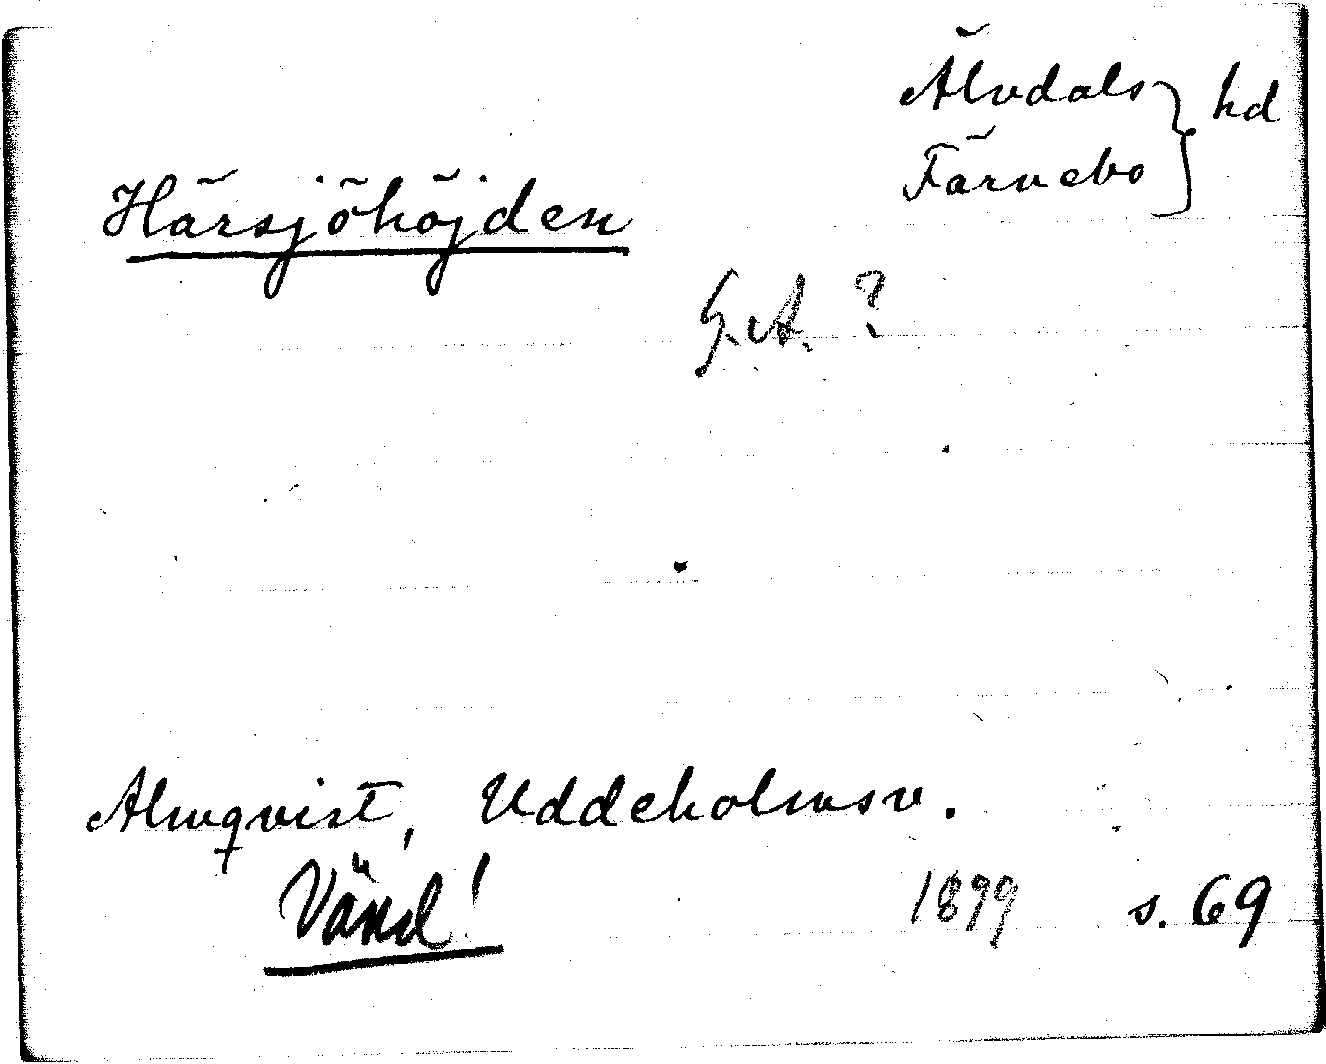 Älvdals } hd
Färnebo
Härsjöhöjden
G.A. ?
Almqvist, Uddeholmsv.
Vänd!
1899 s. 69